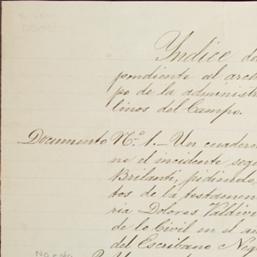 Yndice de
pondiente al arch
po de la administr
linos del Campo.
Documento Nº 1.— Un cuadern
ne el incidente segu
Brilanti, pidiendo
tos de la testament
ria Dolores Valdiv
de lo Civil en el a
del Escribano Nig